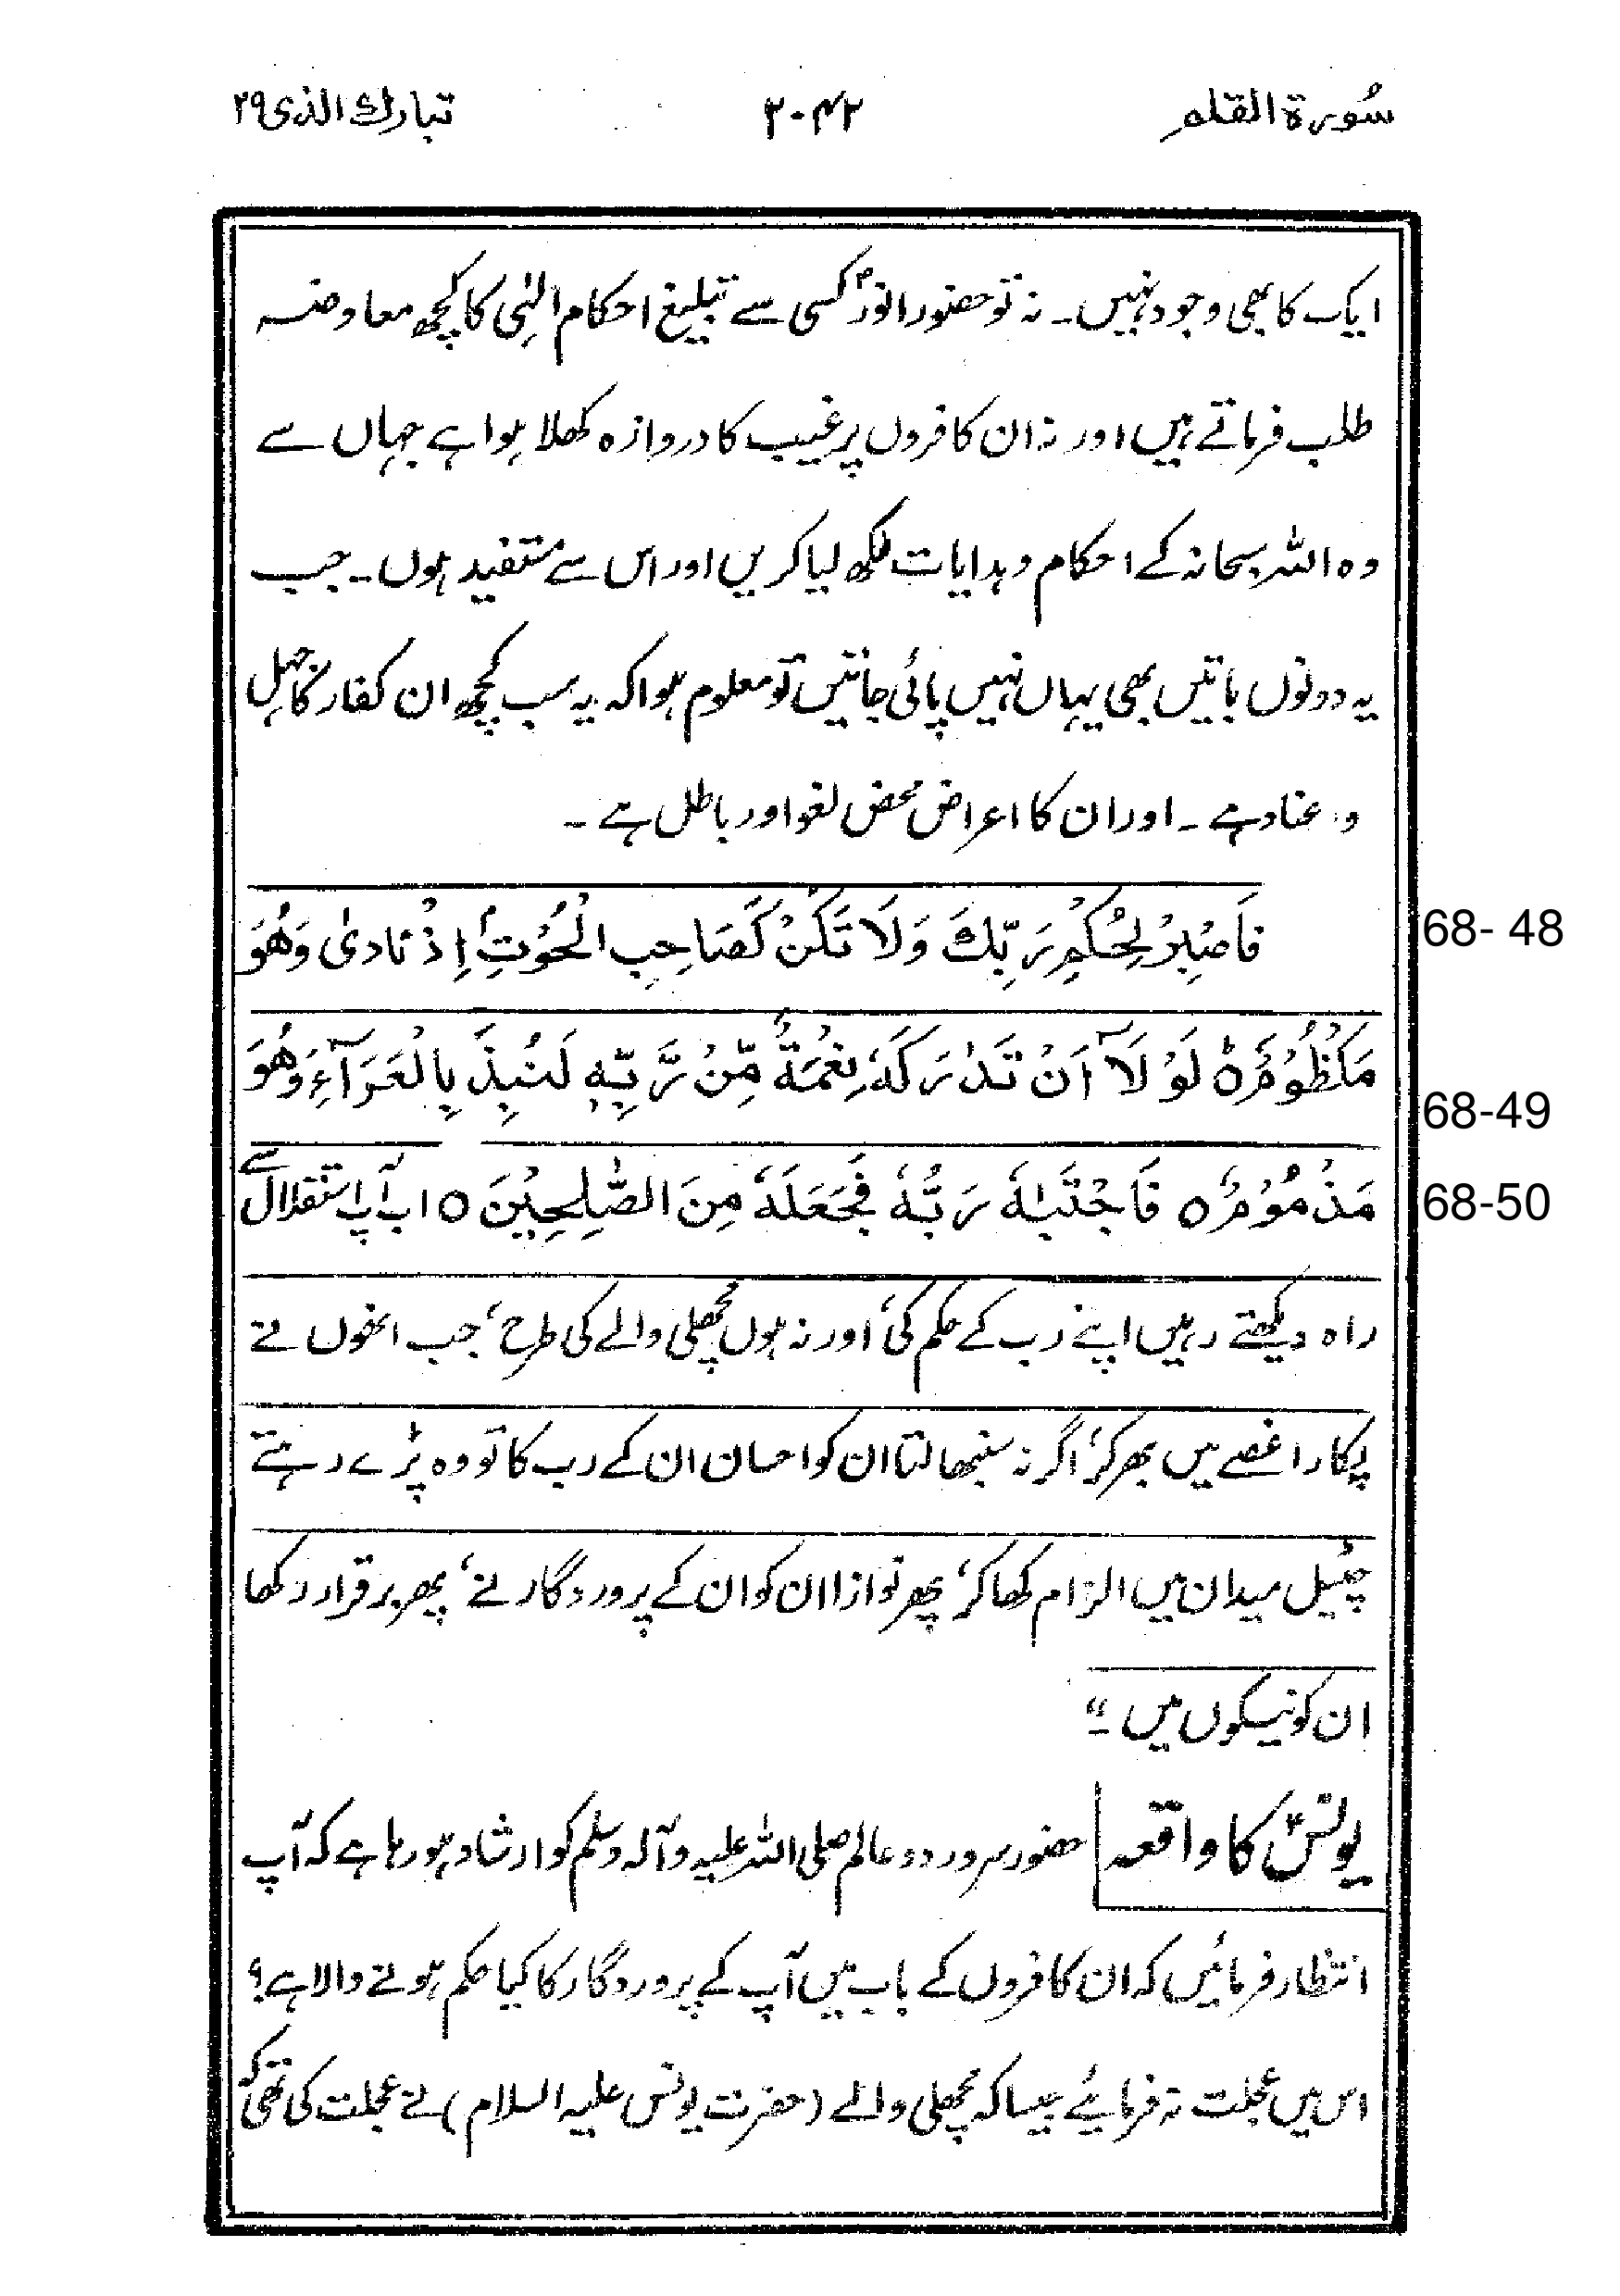 سُورة القلم ۲۰۴۲ تبارك الذی ۲۹
ایک کا بھی وجود نہیں۔ نہ تو حضور انورؐ کسی سے تبلیغ احکام الٰہی کا کچھ معاوضہ
طلب فرماتے ہیں اور نہ ان کافروں پر غیب کا دروازہ کھلا ہوا ہے جہاں سے
وہ اللہ سبحانہ کے احکام و ہدایات لکھ لیا کریں اور اس سے متفید ہوں۔ جب
یہ دونوں باتیں بھی یہاں نہیں پائی جاتیں تو معلوم ہوا کہ یہ سب کچھ ان کفار کا جہل
و عناد ہے۔ اور ان کا اعراض محض لغو اور باطل ہے۔
فَاصْبِرْ لِحُكْمِ رَبِّكَ وَلَا تَكُنْ كَصَاحِبِ الْحُوْتِ اِذْ نَادٰى وَهُوَ
68- 48
مَكْظُوْمٌ ۝ لَوْ لَآ اَنْ تَدٰرَكَهٗ نِعْمَةٌ مِّنْ رَّبِّهٖ لَنُبِذَ بِالْعَرَآءِ وَهُوَ
68-49
مَذْمُوْمٌ ۝ فَاجْتَبٰهُ رَبُّهٗ فَجَعَلَهٗ مِنَ الصّٰلِحِيْنَ ۝ اب آپ استقلال سے
68-50
راہ دیکھتے رہیں اپنے رب کے حکم کی، اور نہ ہوں مچھلی والے کی طرح، جب انھوں نے
پکارا غصے میں بھر کر، اگر نہ سنبھالتا ان کو احسان ان کے رب کا تو وہ پڑے رہتے
چٹیل میدان میں الزام کھا کر، پھر نوازا ان کو ان کے پروردگار نے، پھر برقرار رکھا
ان کو نیکوں میں۔"
یونسؑ کا واقعہ حضور سرور دو عالم صلی اللہ علیہ وآلہ وسلم کو ارشاد ہو رہا ہے کہ آپ
انتظار فرمائیں کہ ان کافروں کے باب میں آپ کے پروردگار کا کیا حکم ہونے والا ہے؟
اس میں عجلت نہ فرمائیے جیسا کہ مچھلی والے (حضرت یونس علیہ السلام) نے عجلت کی تھی کہ